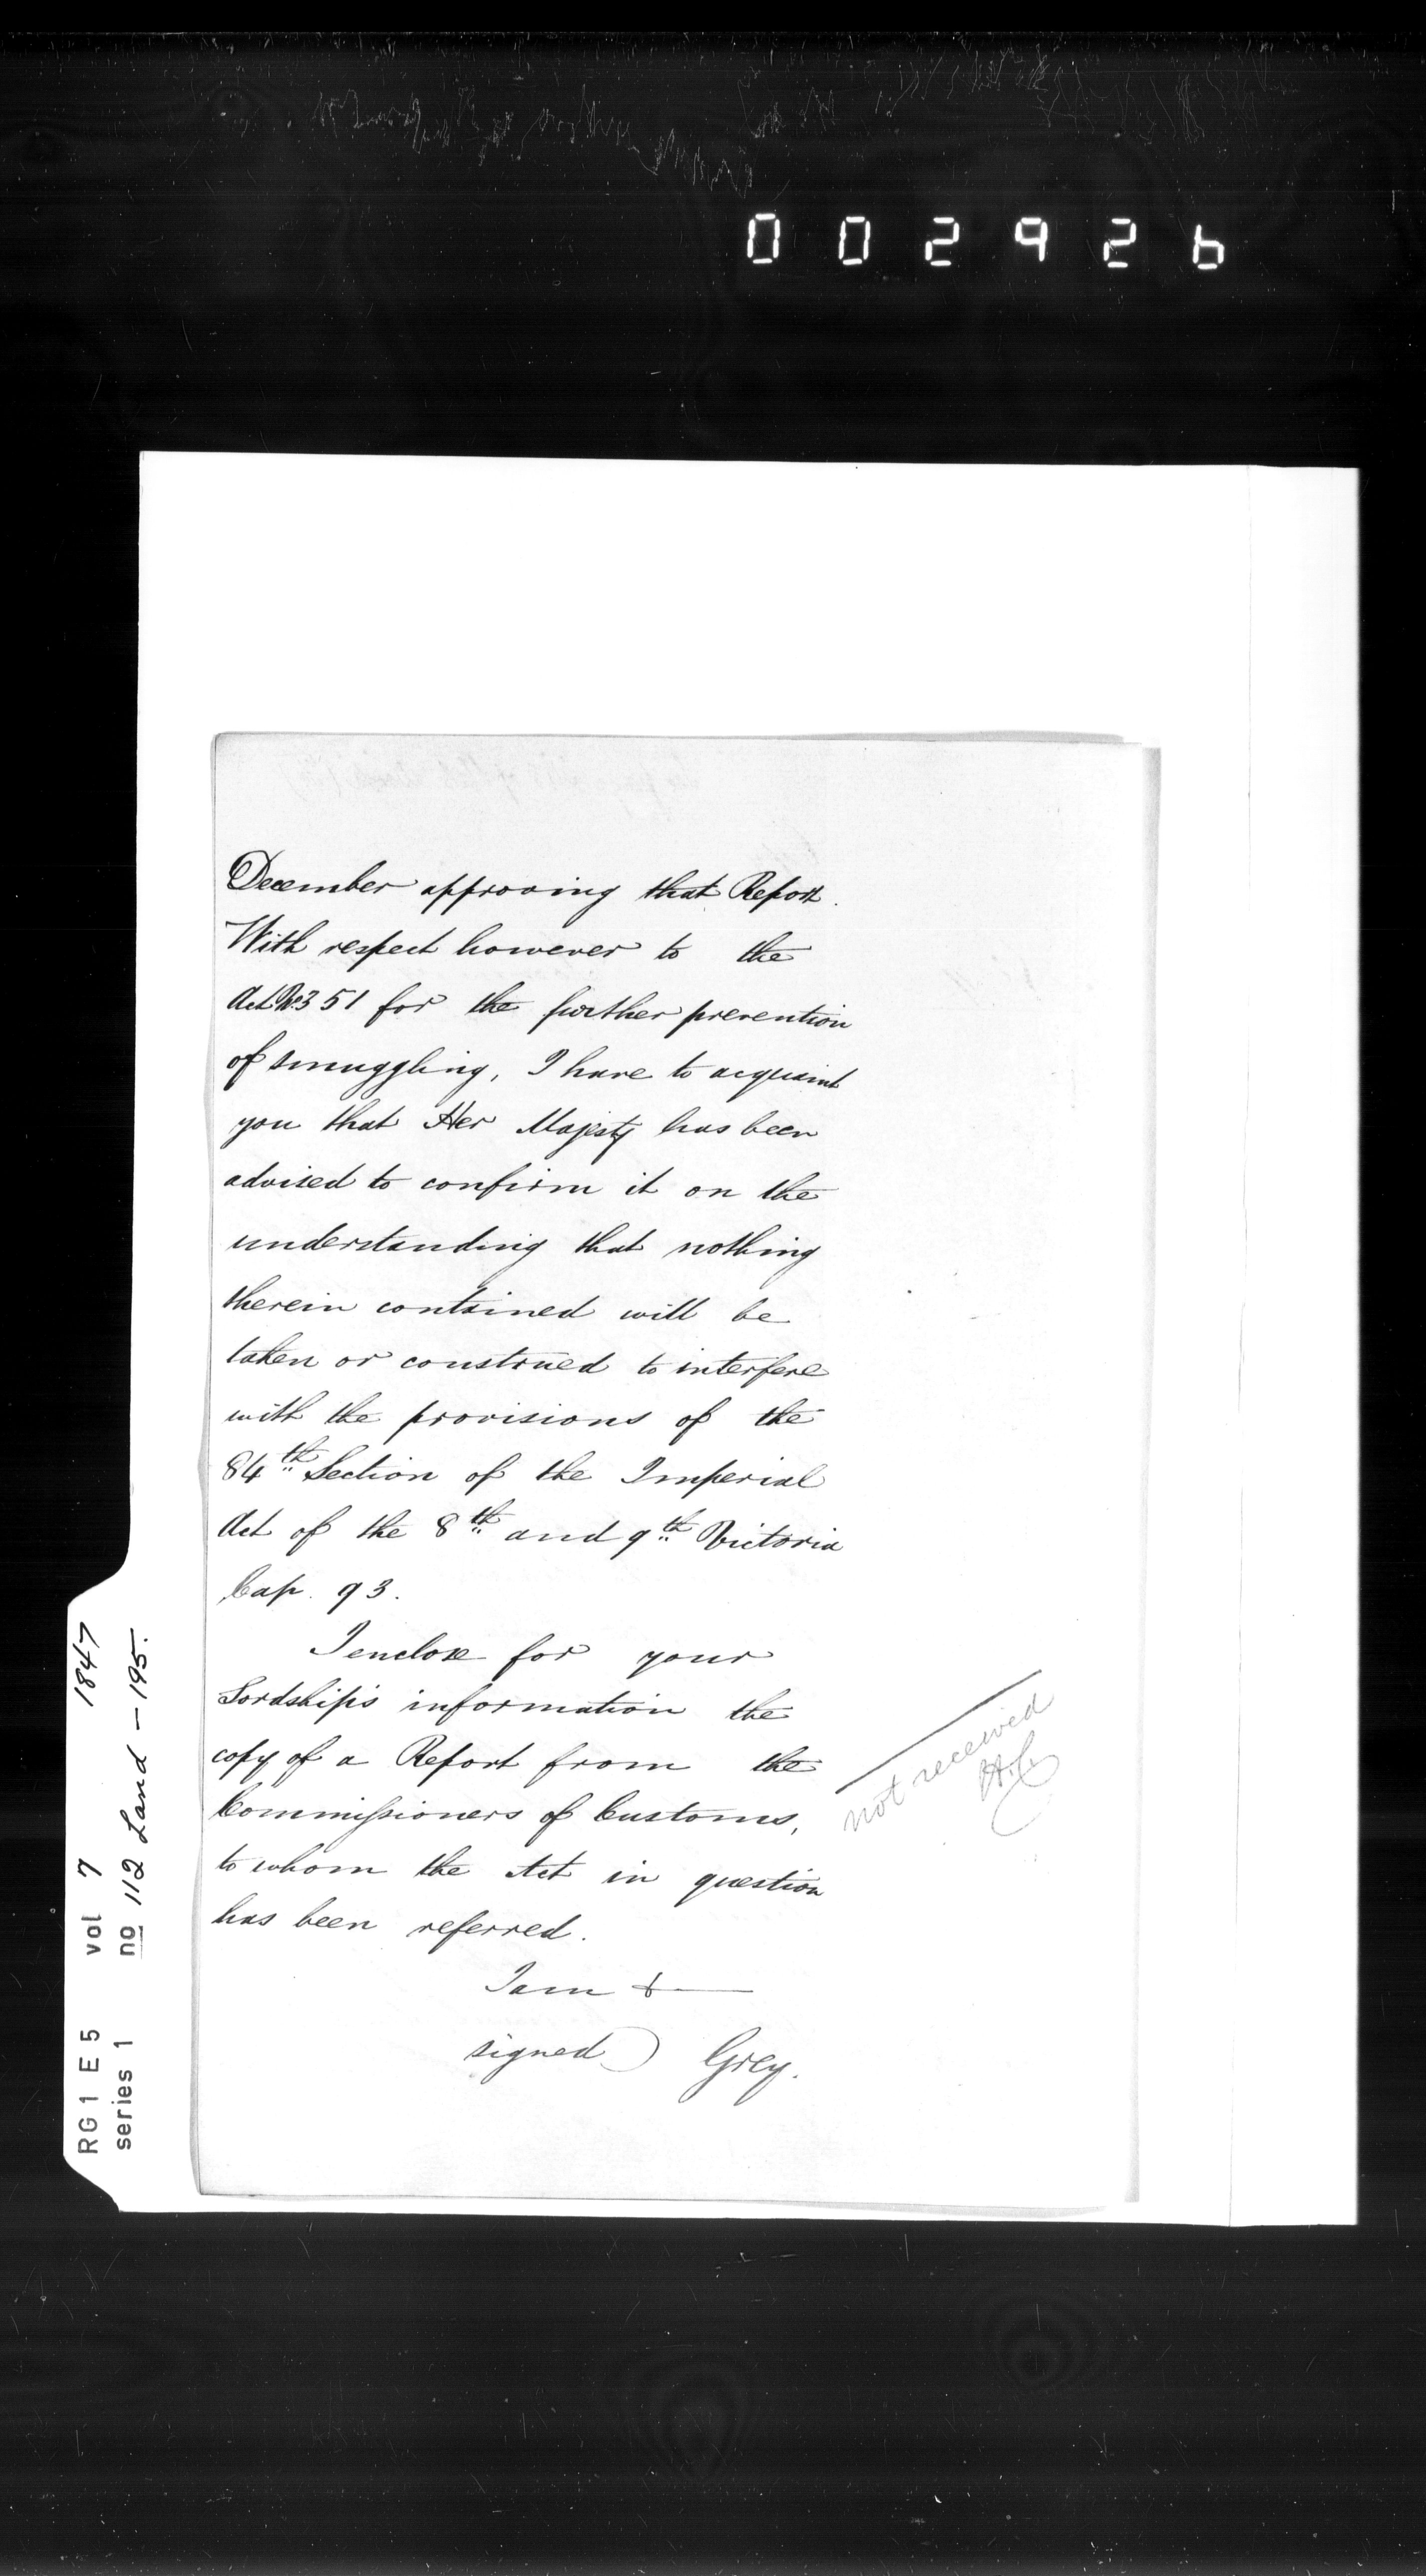 002926
December approving that Report.
With respect however to the
Act No 351 for the further prevention
of smuggling, I have to acquaint
you that Her Majesty has been
advised to confirm it on the
understanding that nothing
therein contained will be
taken or construed to interfere
with the provisions of the
84th Section of the Imperial
Act of the 8th and 9th Victoria
Cap. 93.
I enclose for your
Lordship's information the
copy of a Report from the
Commissioners of Customs,
to whom the Act in question
has been referred.
I am &
signed) Grey.
not received
RG1 E5 vol 7 1847
series 1 no 112 Land - 195.